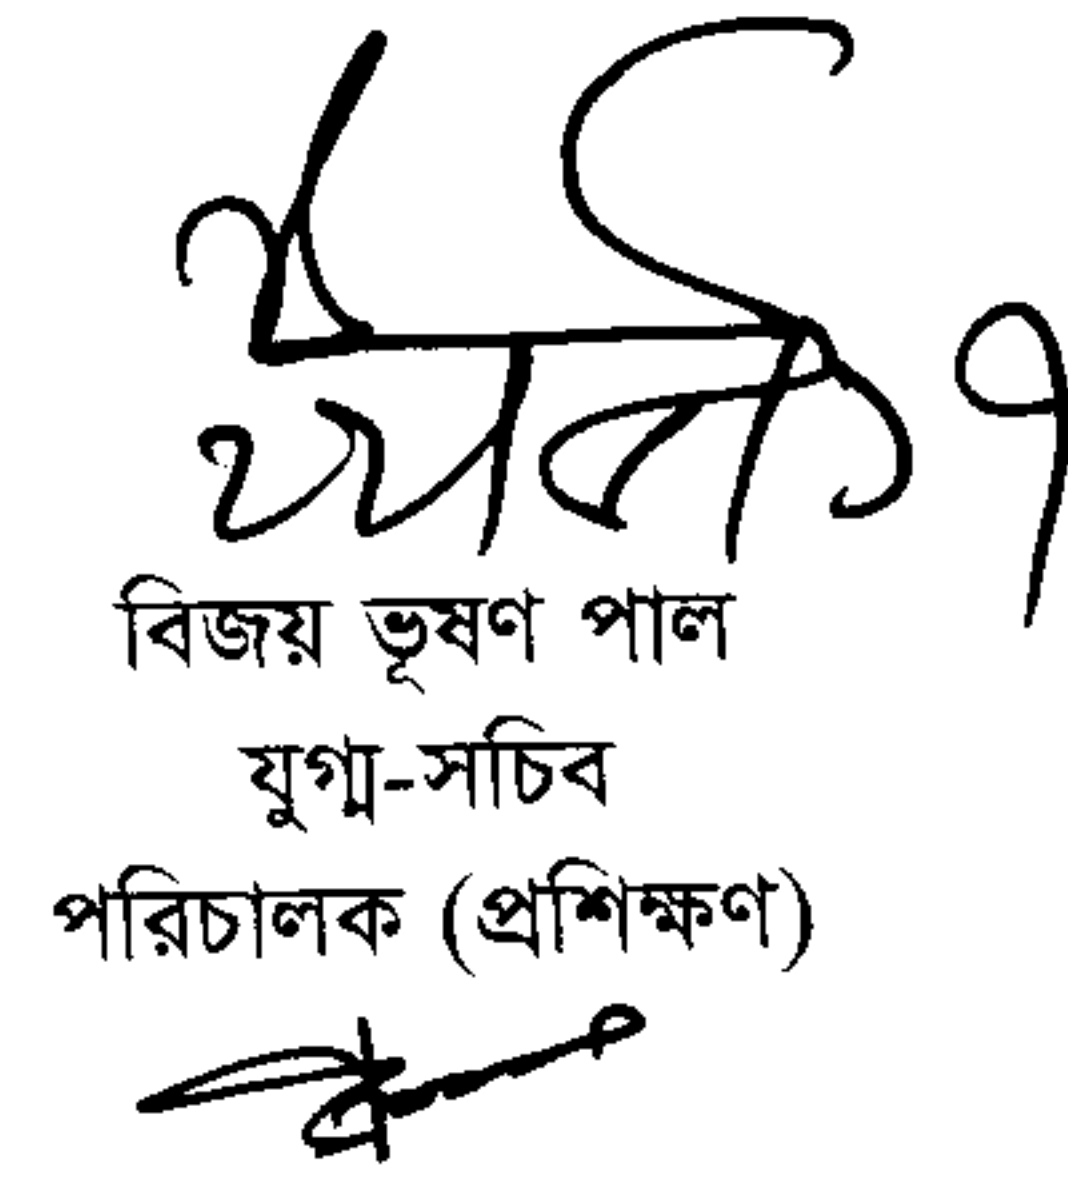 বিজয় ভূষণ পাল
যুগ্ম-সচিব
পরিচালক (প্রশিক্ষণ)